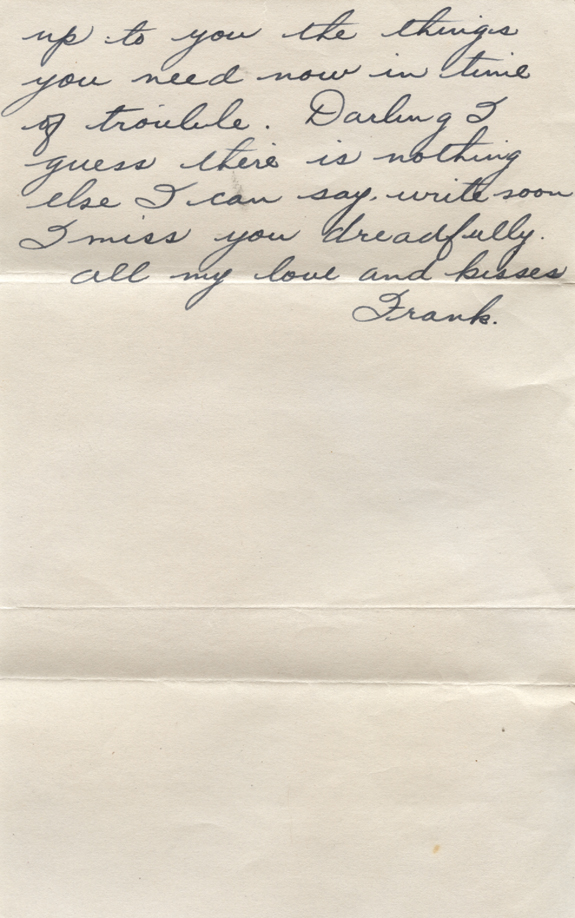 up to you the things
you need now in time
of trouble. Darling I
guess there is nothing
else I can say. write soon
I miss you dreadfully.
all my love and kisses
Frank.